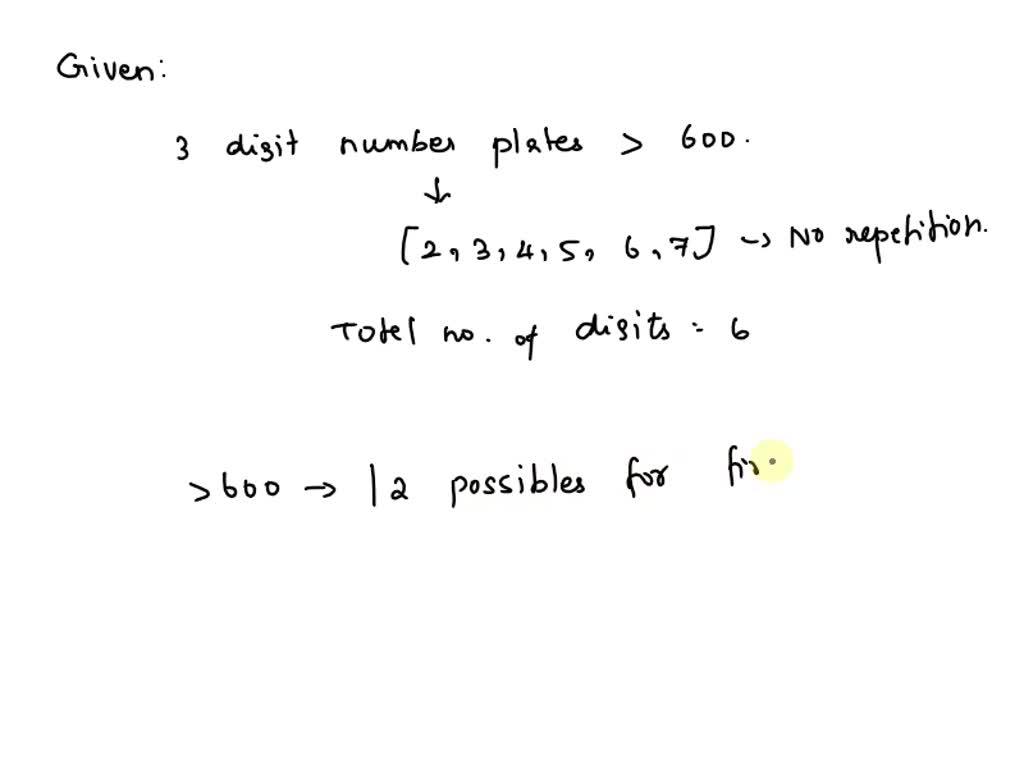 Given:
3 digit number plates > 600.
↓
[2, 3, 4, 5, 6, 7] → No repetition.
Total no. of digits = 6
> 600 → | 2 possibles for fir